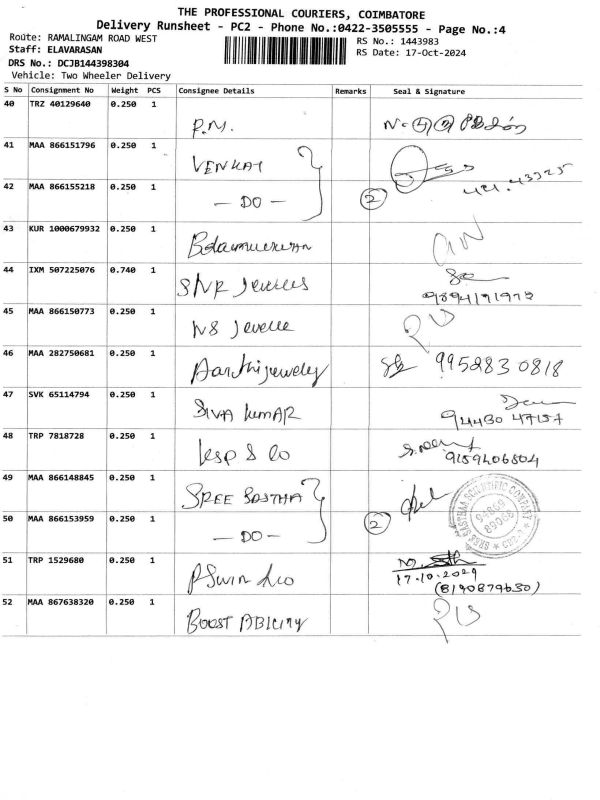 THE PROFESSIONAL COURIERS, COIMBATORE
Delivery Runsheet - PC2 - Phone No.:0422-3505555 - Page No.:4
Route: RAMALINGAM ROAD WEST
RS No.: 1443983
Staff: ELAVARASAN
RS Date: 17-Oct-2024
DRS No.: DCJB144398304
Vehicle: Two Wheeler Delivery
S No Consignment No Weight PCS Consignee Details Remarks Seal & Signature
40 TRZ 40129640 0.250 1 P.M.
41 MAA 866151796 0.250 1 VENKAT
42 MAA 866155218 0.250 1 - DO - 2
43 KUR 1000679932 0.250 1
44 IXM 507225076 0.740 1 SNR Jewellers
45 MAA 866150773 0.250 1 NS Jewelle
46 MAA 282750681 0.250 1 Aarthi jewelry 99528 30818
47 SVK 65114794 0.250 1 SIVA KUMAR 94430 47157
48 TRP 7818728 0.250 1 KSP & Co 9159406804
49 MAA 866148845 0.250 1 SREE SASTHA
50 MAA 866153959 0.250 1 - DO - 2
51 TRP 1529680 0.250 1 17.10.2024
(8190879630)
52 MAA 867638320 0.250 1 BOOST ABILITY